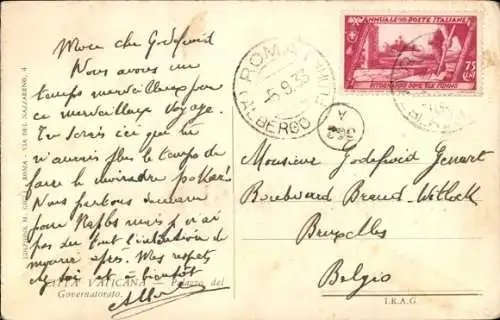 Mon cher Godefroid
Nous avons un
temps merveilleux pour
ce merveilleux voyage.
Tu serais ici que tu
n'aurais plus le temps de
faire le moindre poker!
Nous partons demain
pour Naples mais je n'ai
pas du tout l'intention de
mourir après. Mes respects
chez toi et à bientôt
CITTÀ VATICANA — Palazzo del
Governatorato.
EDIZIONE M. ROMA - VIA DEL NAZZARENO, 4
ROMA
ALBERGO
6.9.33
A
ANNUALE DELLE POSTE ITALIANE
RITORNANDO DOVE GIÀ FUMMO
75
CENT
Monsieur Godefroid Genart
Boulevard Brand-Witlock
Bruxelles
Belgio
I.R.A.G.